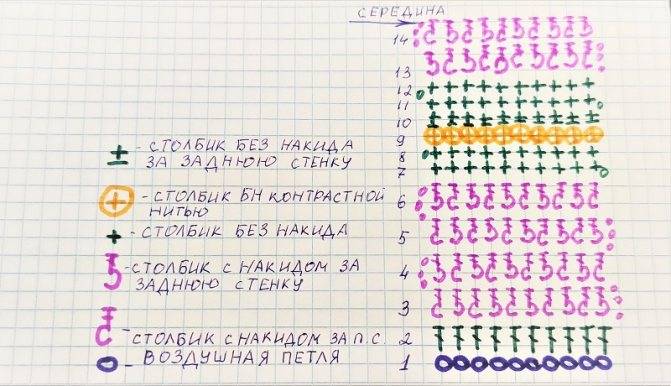 СЕРЕДИНА
14
13
12
11
10
9
8
7
6
5
4
3
2
1
- СТОЛБИК БЕЗ НАКИДА
ЗА ЗАДНЮЮ СТЕНКУ
- СТОЛБИК БН КОНТРАСТНОЙ
НИТЬЮ
- СТОЛБИК БЕЗ НАКИДА
- СТОЛБИК С НАКИДОМ ЗА
ЗАДНЮЮ СТЕНКУ
- СТОЛБИК С НАКИДОМ ЗА П.С.
- ВОЗДУШНАЯ ПЕТЛЯ